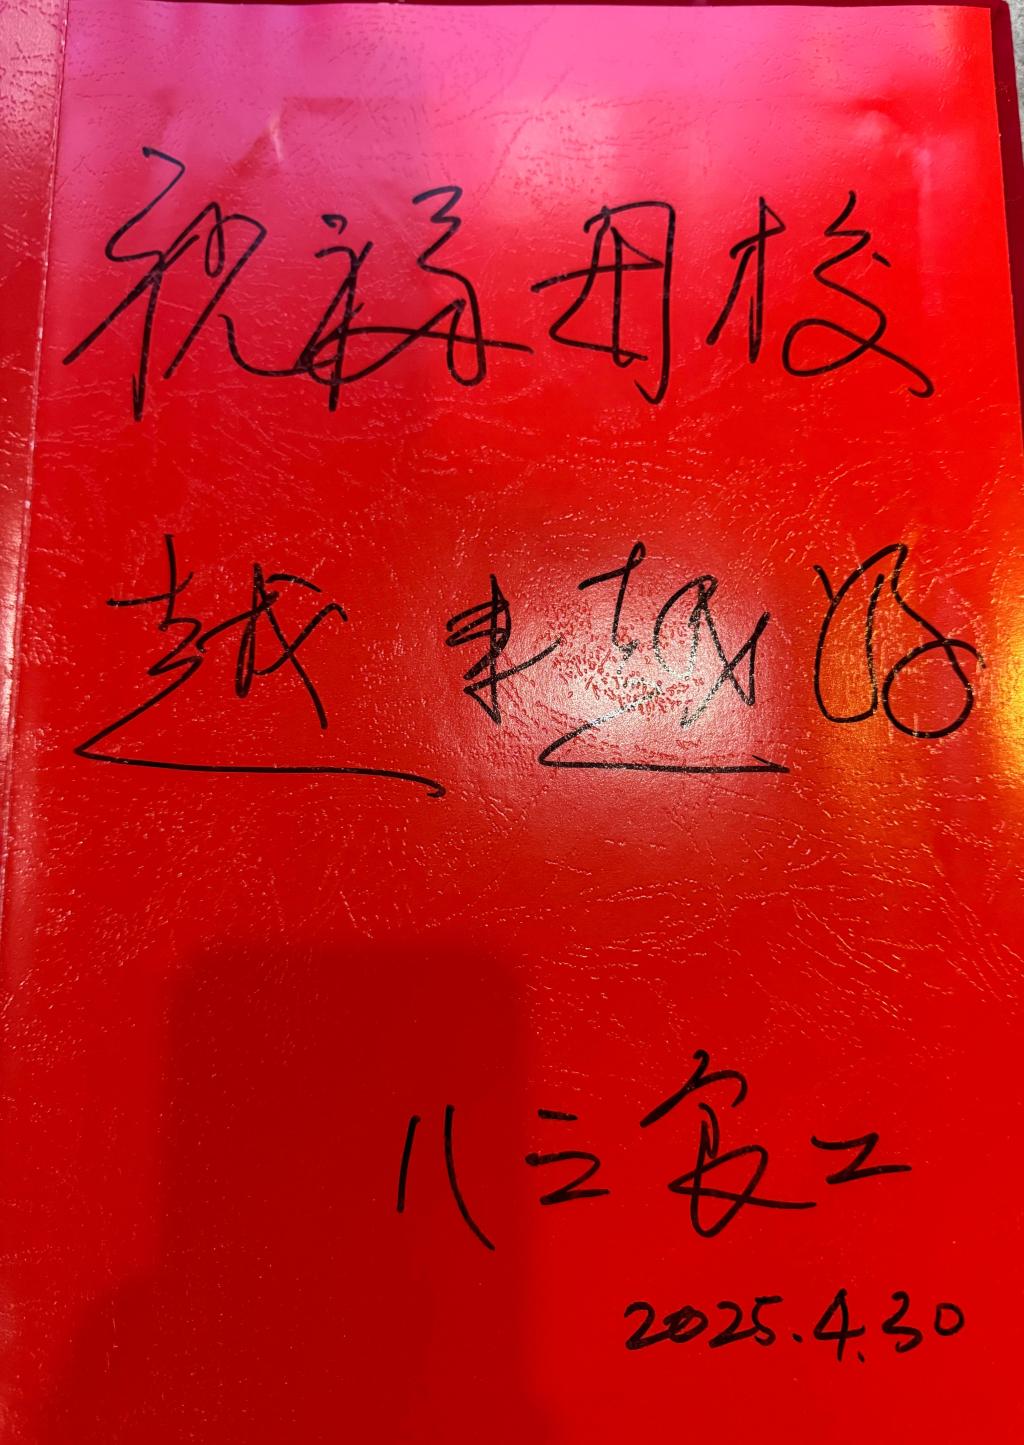 祝福母校
越来越好
八三复二
2025.4.30